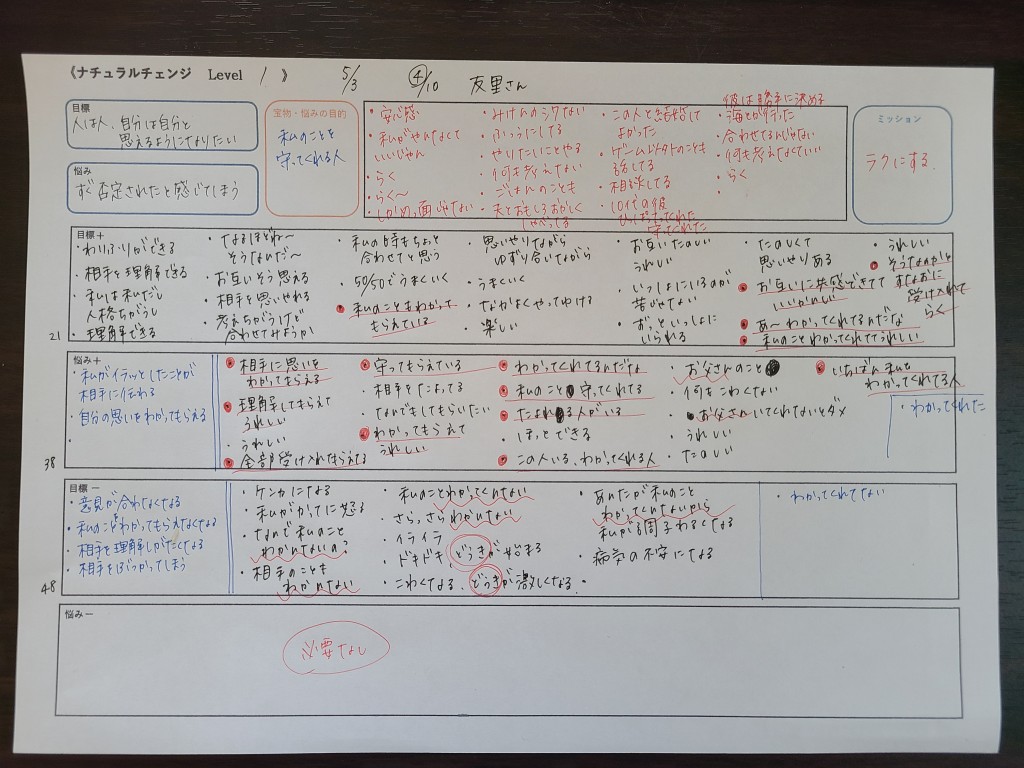 《ナチュラルチェンジ Level 1 》
5/3
④/10
友里さん
目標
人は人、自分は自分と
思えるようになりたい
悩み
すぐ否定されたと感じてしまう
宝物・悩みの目的
私のことを
守ってくれる人
・安心感
・私がやんなくて
いいじゃん
・らく
・らく〜
・しかめっ面じゃない
・みけんのシワない
・ふつうにしてる
・やりたいことやる
・何も考えない
・ごはんのことも
・夫とおもしろおかしく
しゃべってる
・この人と結婚して
よかった
・ゲーム以外のことも
話してる
・相談してる
・10代の彼
ひっぱってくれた
守ってくれた
彼は勝手に決める
・海とか行った
・合わせてるんじゃない
・何も考えなくていい
・らく
ミッション
ラクにする
目標+
・わりふりができる
・相手を理解できる
・私は私だし
人格ちがうし
・理解できる
・なるほどね〜
そうなんだ〜
・お互いそう思える
・相手を思いやれる
・考えちがうけど
合わせてみようか
・私の時もちょっと
合わせてと思う
・50/50でうまくいく
・私のこともわかって
もらえている
・思いやりながら
ゆずり合いながら
・うまくいく
・なかよくやってゆける
・楽しい
・お互いたのしい
うれしい
・いっしょにいるのが
苦じゃない
・ずっといっしょに
いられる
・たのしくて
思いやりある
・お互いに共感できてて
いいかんじ
・あ〜わかってくれてるんだな
・私のことわかってくれててうれしい
・うれしい
・そうなんだと
すなおに
受け入れて
らく
21
悩み+
・私がイラッとしたことが
相手に伝わる
・自分の思いをわかってもらえる
・相手に思いを
わかってもらえる
・理解してもらえて
うれしい
・うれしい
・全部受け入れてもらえてる
・守ってもらえている
・相手をたよってる
・なんでもしてもらいたい
・わかってもらえて
うれしい
・わかってくれてるんだな
・私のこと守ってくれてる
・たよれる人がいる
・ほっとできる
・この人いる、わかってくれる人
・お父さんのこと
・何もこわくない
・お父さんいてくれないとダメ
・うれしい
・たのしい
・いちばん私を
わかってくれてる人
・わかってくれた
38
目標−
・意見が合わなくなる
・私のことわかってもらえなくなる
・相手を理解しがたくなる
・相手とぶつかってしまう
・ケンカになる
・私がかってに怒る
・なんで私のこと
わかんないの?
・相手のことも
わかんない
・私のことわかってくれない
・さらっさらわかんない
・イライラ
・ドキドキ、どうきが始まる
・こわくなる、どうきが激しくなる。
・あんたが私のこと
わかってくんないから
私が調子わるくなる
・病気の不安になる
・わかってくれてない
48
悩み−
必要なし